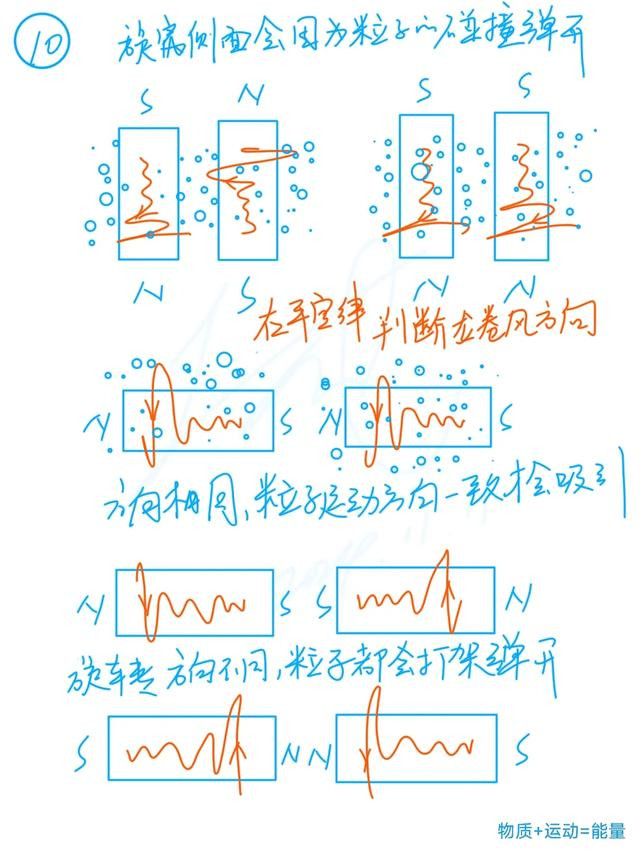 10
旋窝侧面会因为粒子的碰撞弹开
S N S S
N S N N
右手定律 判断龙卷风方向
N S N S
方向相同,粒子运动方向一致才会吸引
N S S N
旋转方向不同,粒子都会打架弹开
S N N S
物质+运动=能量